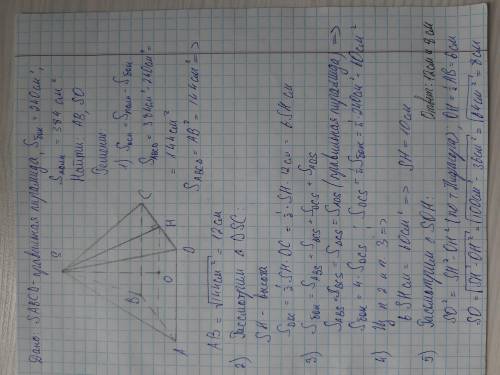 Дано: SABCD - правильная пирамида, Sбок = 240 см²,
Sполн = 384 см²
Найти: AB, SO
Решение
1) Sосн = Sполн - Sбок
SABCD = 384 см² - 240 см² =
= 144 см²
SABCD = AB² = 144 см² =>
S
B
C
H
A
O
D
AB = √144 см² = 12 см
2) Рассмотрим ΔDSC:
SH - высота
SDSC = 1/2 · SH · DC = 1/2 · SH · 12 см = 6 SH см
3) Sбок = SABS + SBCS + SDCS + SADS
SABS = SBCS = SDCS = SADS (правильная пирамида) =>
Sбок = 4 · SDCS; SDCS = 1/4 Sбок = 1/4 · 240 см² = 60 см²
4) Из п 2 и п 3 =>
6 SH см = 60 см² => SH = 10 см
5) Рассмотрим ΔSOH:
SO² = SH² - OH² (по т Пифагора); OH = 1/2 AB = 6 см
SO = √SH² - OH² = √100 см² - 36 см² = √64 см² = 8 см
Ответ: 12 см и 8 см